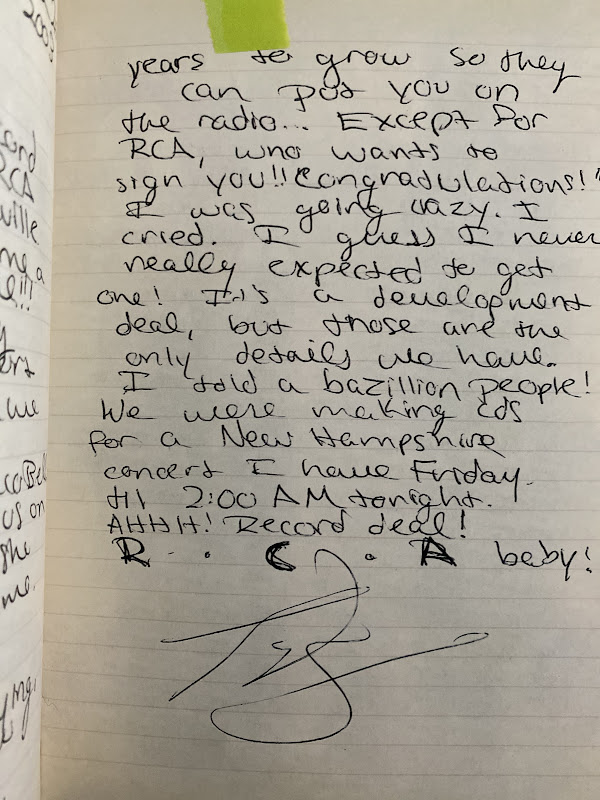 ville
us on
she
me.
years to grow so they
can put you on
the radio... Except for
RCA, who wants to
sign you!! "Congradulations!"
I was going crazy. I
cried. I guess I never
really expected to get
one! It's a development
deal, but those are the
only details we have.
I told a bazillion people!
We were making cds
for a New Hampshire
concert I have Friday.
til 2:00 AM tonight.
AHHH! Record deal!
R . C . A baby!